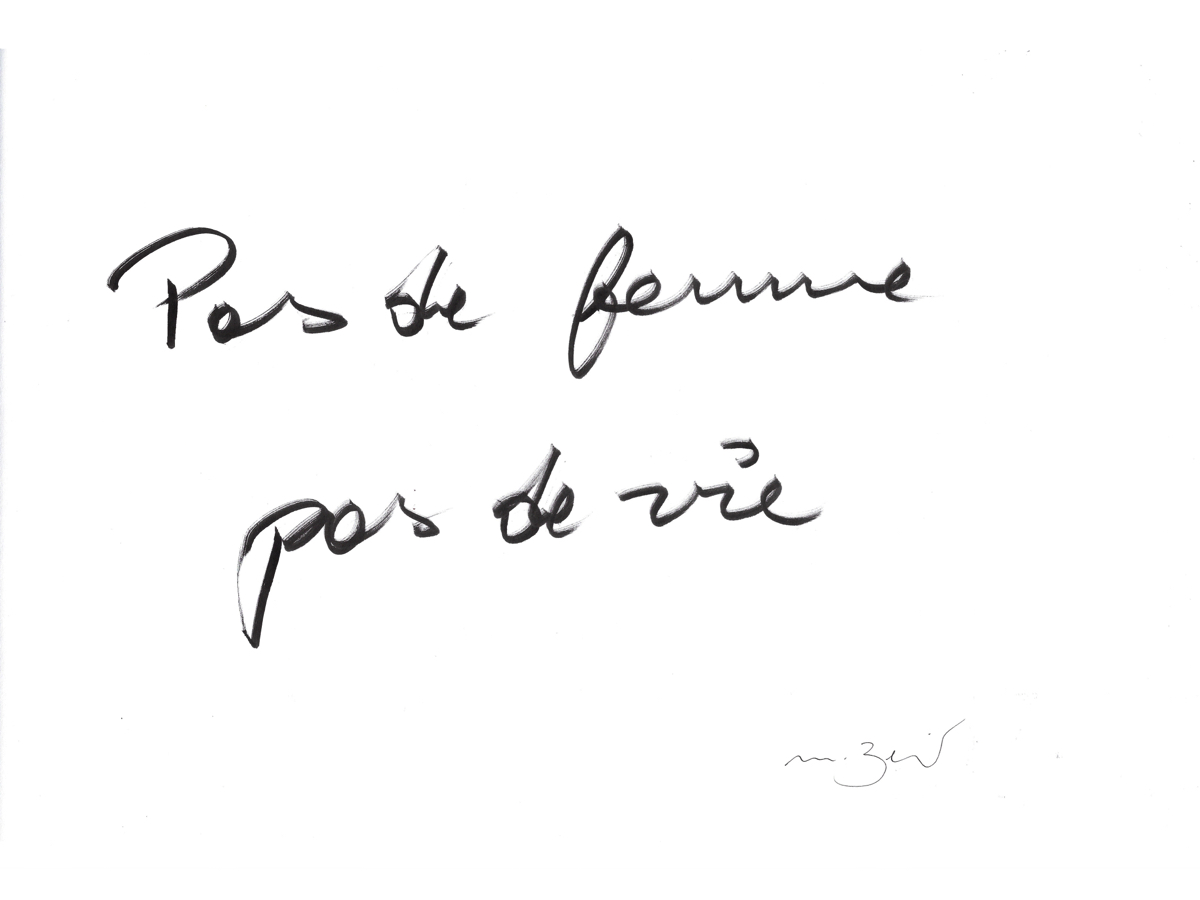 Pas de femme
pas de vie